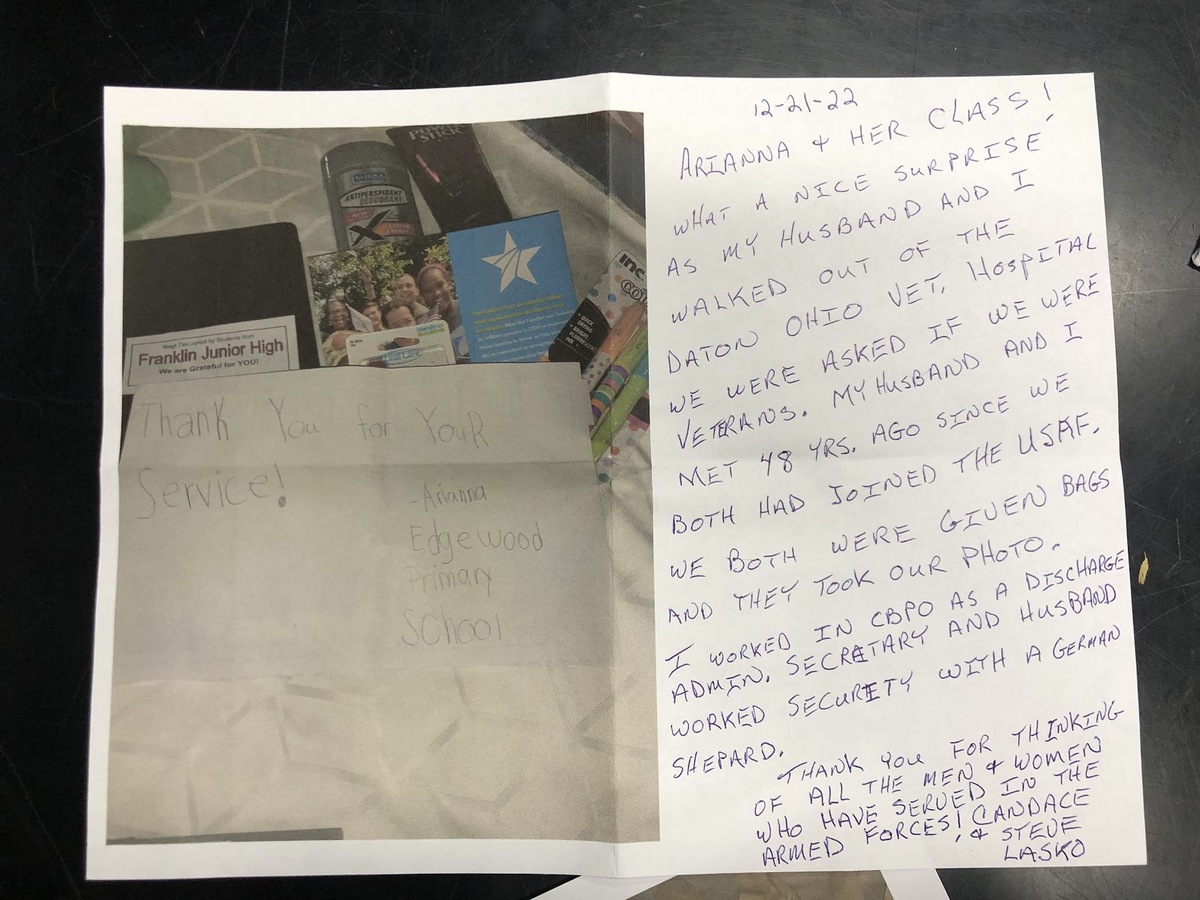 POWER
STICK
ANTIPERSPIRANT
DEODORANT
inc.
Bags Decorated by Students from
Franklin Junior High
We are Grateful for YOU!
Thank You for YouR
Service!
-Arianna
Edgewood
Primary
SChool
12-21-22
ARIANNA & HER CLASS!
WHAT A NICE SURPRISE
AS MY HUSBAND AND I
WALKED OUT OF THE
DATON OHIO VET. HOSPITAL
WE WERE ASKED IF WE WERE
VETERANS. MY HUSBAND AND I
MET 48 YRS. AGO SINCE WE
BOTH HAD JOINED THE USAF.
WE BOTH WERE GIVEN BAGS
AND THEY TOOK OUR PHOTO.
I WORKED IN CBPO AS A DISCHARGE
ADMIN. SECRETARY AND HUSBAND
WORKED SECURITY WITH A GERMAN
SHEPARD.
THANK YOU FOR THINKING
OF ALL THE MEN & WOMEN
WHO HAVE SERVED IN THE
ARMED FORCES! CANDACE
& STEVE
LASKO